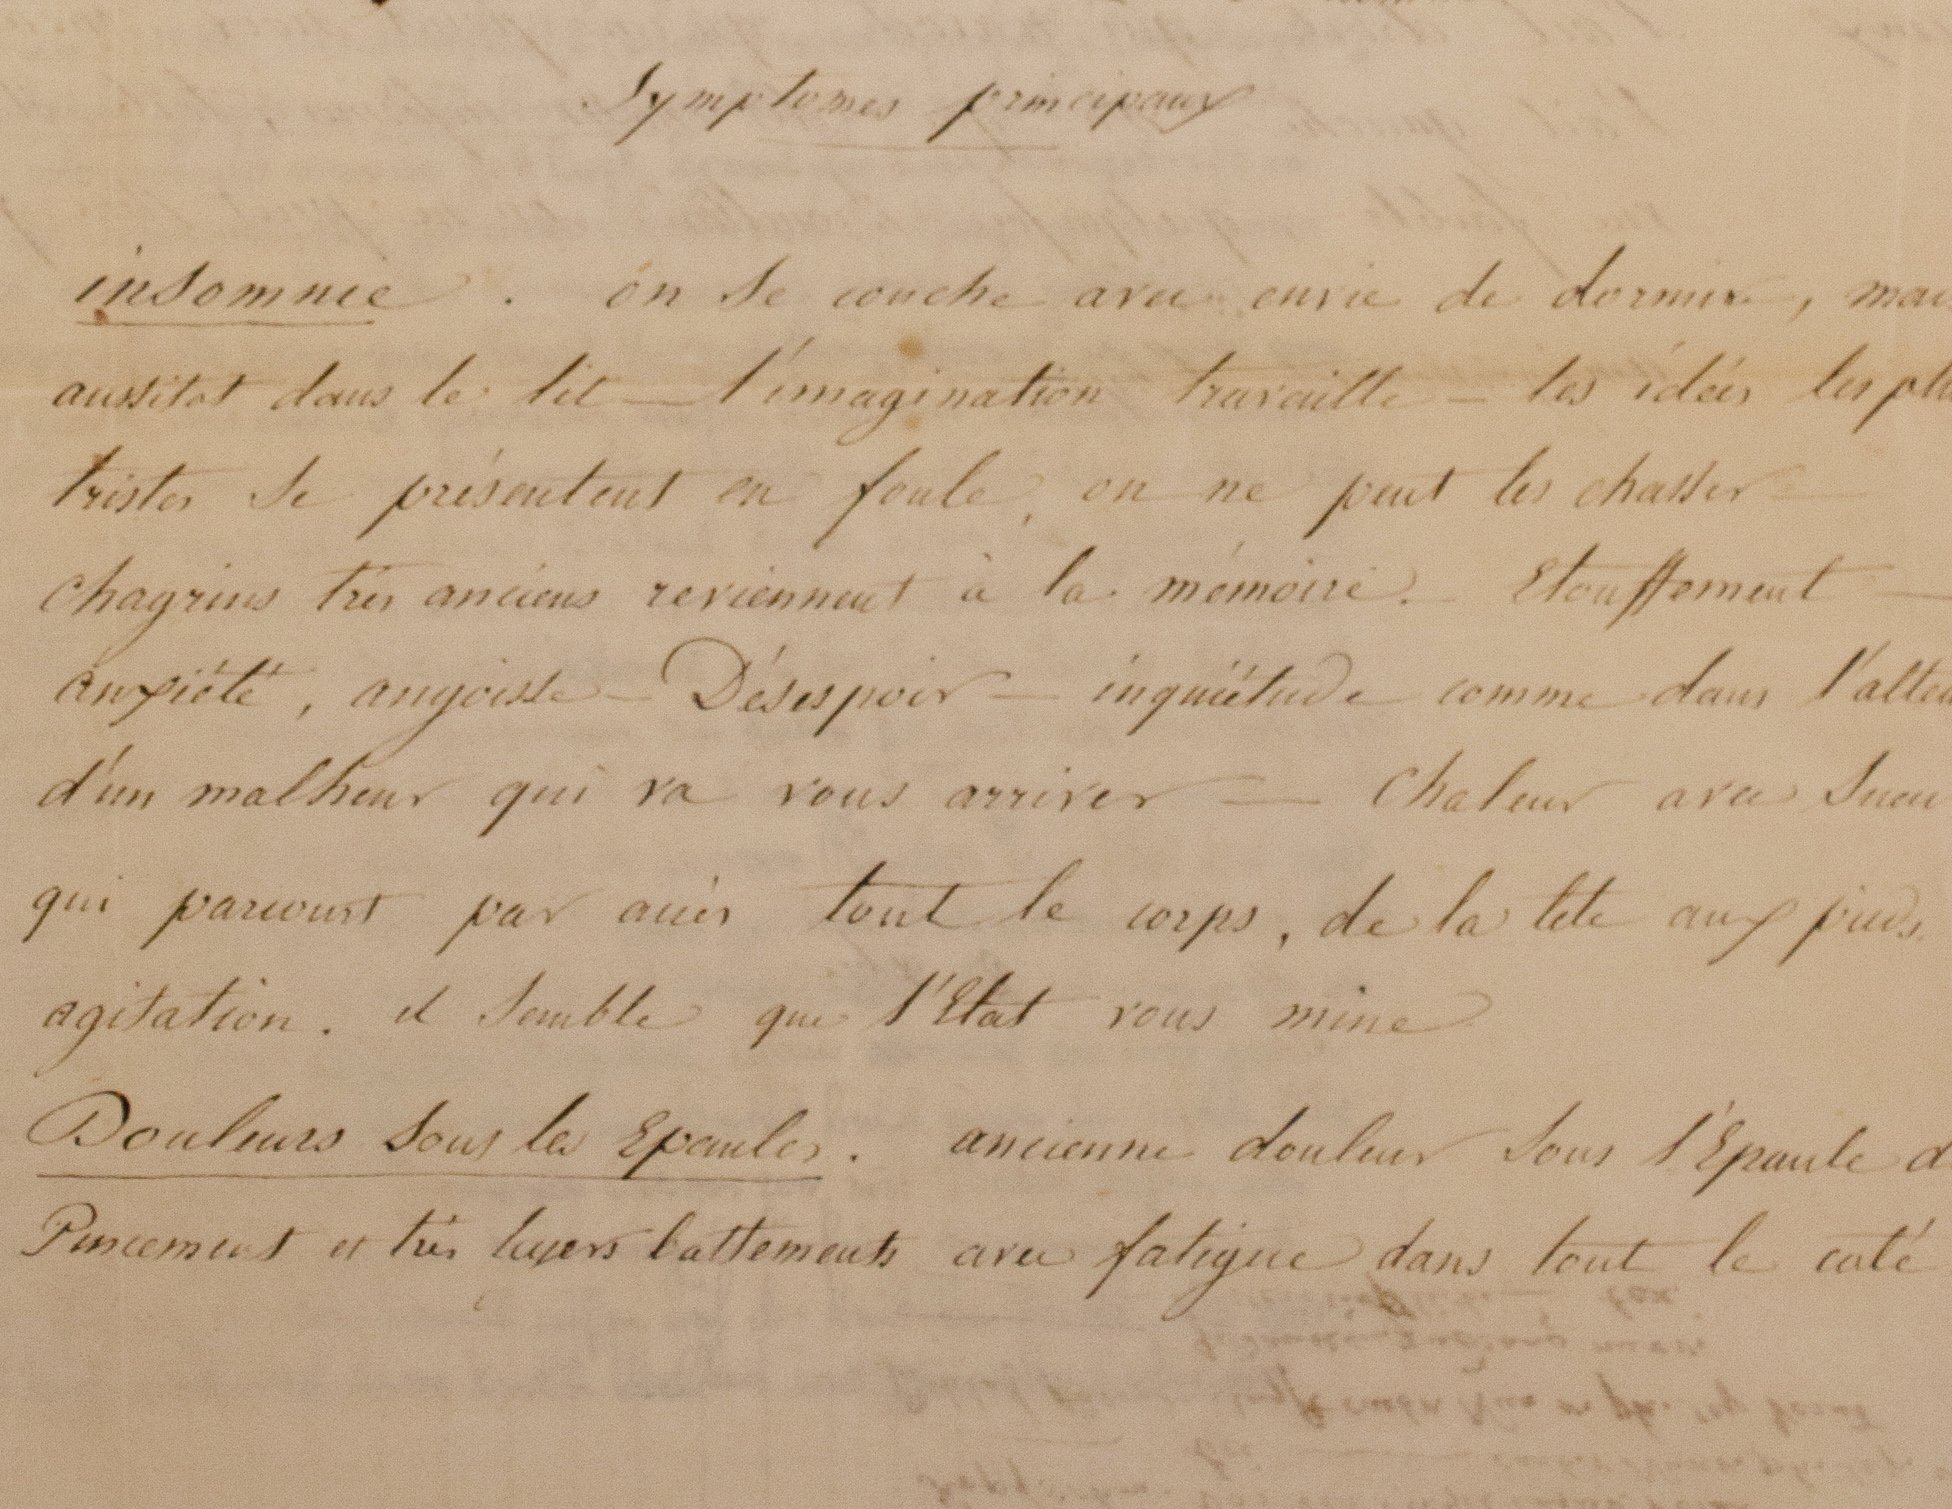 Symptomes principaux
insomnie . on se couche avec envie de dormir, mai
aussitot dans le lit — l'imagination travaille — les idées les plu
tristes se présentent en foule, on ne peut les chasser —
chagrins très anciens reviennent à la mémoire. Etouffement —
anxiété, angoisse — Désespoir — inquiétude comme dans l'atten
d'un malheur qui va vous arriver — Chaleur avec sueu
qui parcourt par accès tout le corps, de la tete aux pieds.
agitation. il semble que l'Etat vous mine
Douleurs sous les Epaules. ancienne douleur sous l'Epaule d
Pincement et très legers battements avec fatigue dans tout le coté